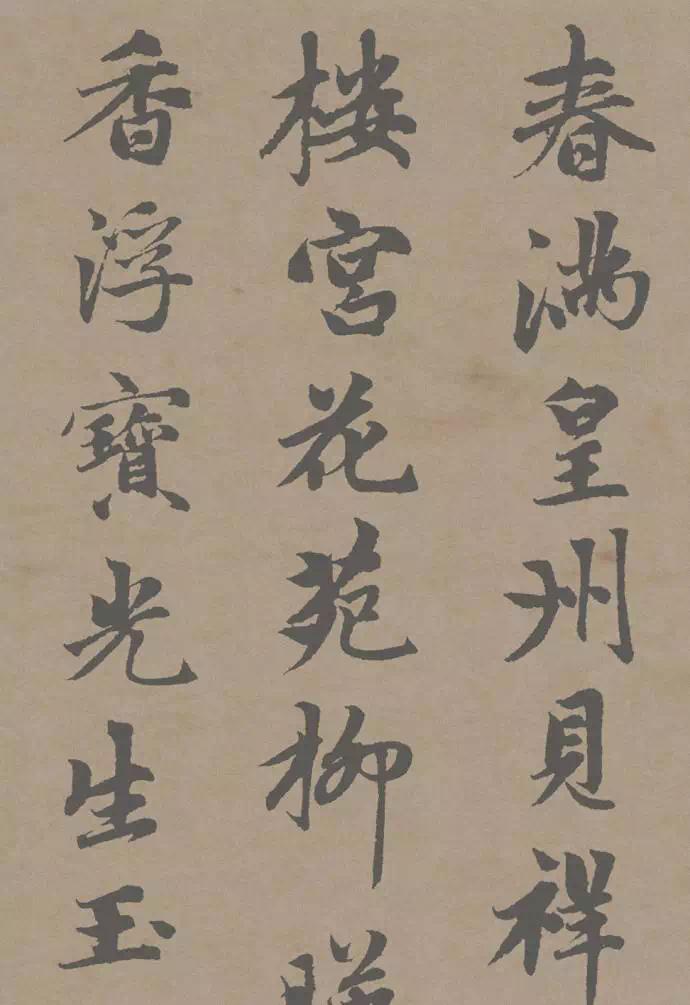 春满皇州見祥
楼宮花苑柳
香浮寶光生玉